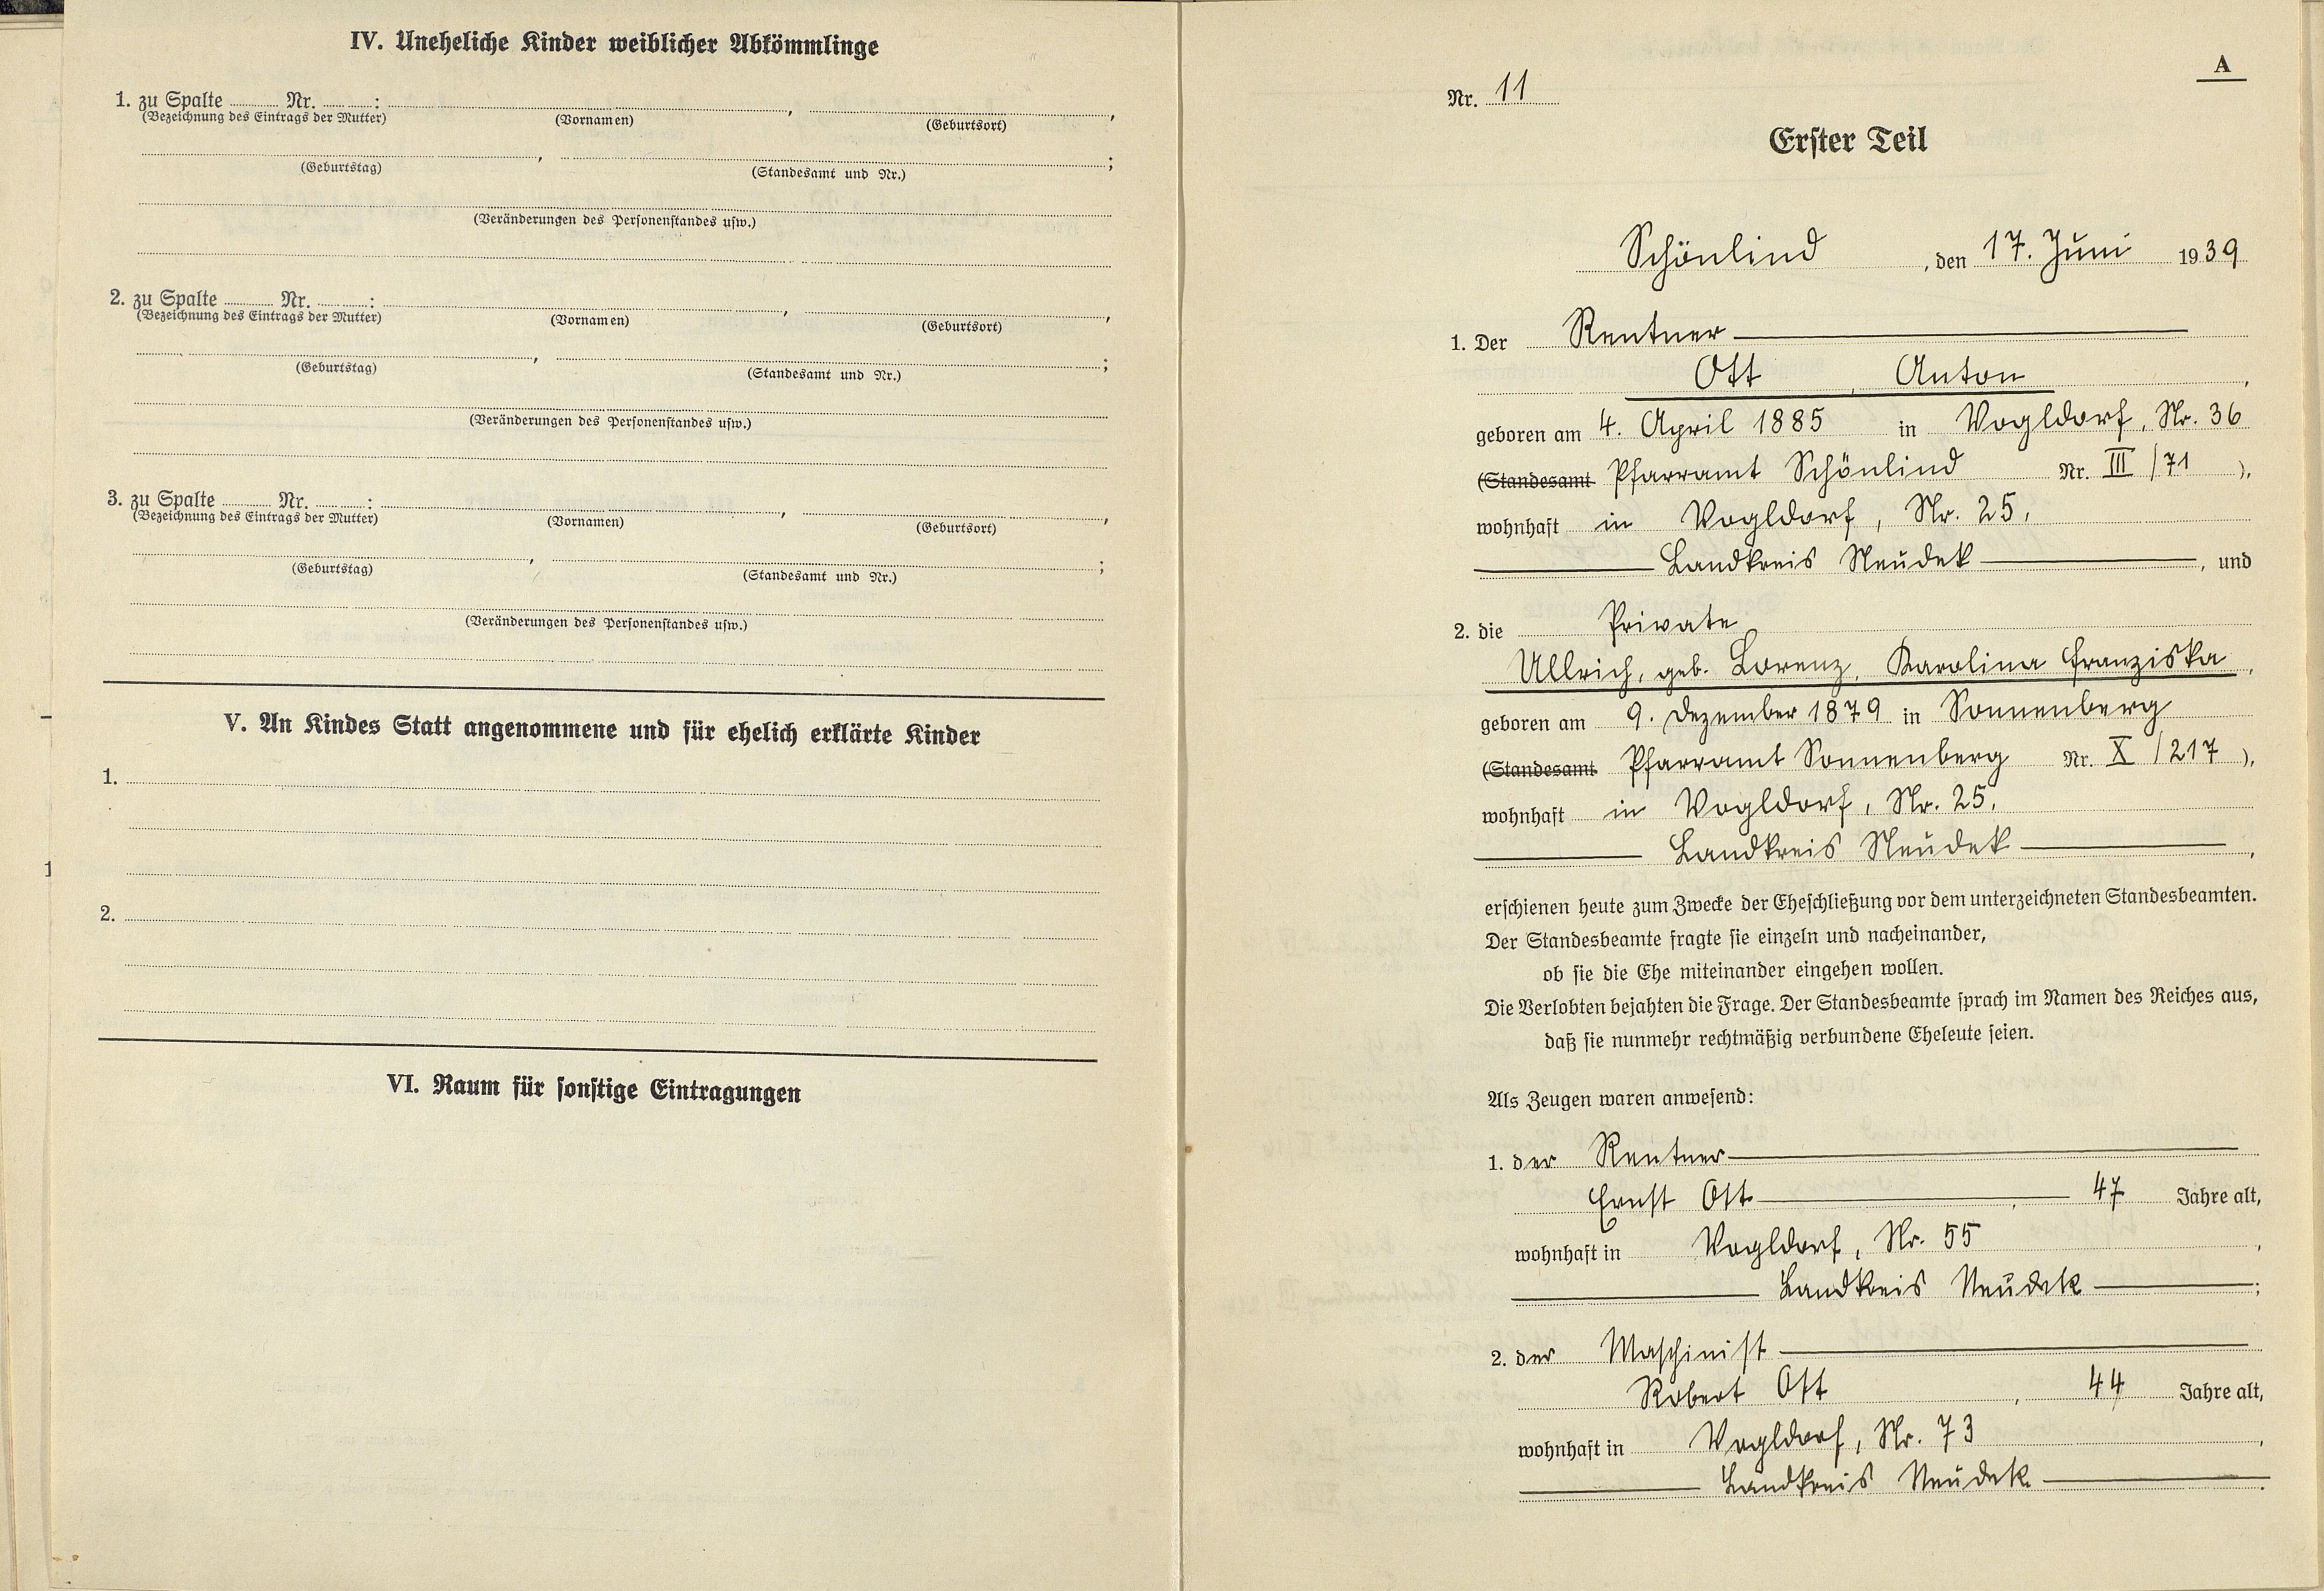 IV. Uneheliche Kinder weiblicher Abkömmlinge
1. zu Spalte Nr. : , ,
(Bezeichnung des Eintrags der Mutter) (Vornamen) (Geburtsort)
, ;
(Geburtstag) (Standesamt und Nr.)
(Veränderungen des Personenstandes usw.)
2. zu Spalte Nr. : , ,
(Bezeichnung des Eintrags der Mutter) (Vornamen) (Geburtsort)
, ;
(Geburtstag) (Standesamt und Nr.)
(Veränderungen des Personenstandes usw.)
3. zu Spalte Nr. : , ,
(Bezeichnung des Eintrags der Mutter) (Vornamen) (Geburtsort)
, ;
(Geburtstag) (Standesamt und Nr.)
(Veränderungen des Personenstandes usw.)
V. An Kindes Statt angenommene und für ehelich erklärte Kinder
1.
2.
VI. Raum für sonstige Eintragungen
A
Nr. 11
Erster Teil
Schönlind , den 17. Juni 1939
1. Der Rentner
Ott , Anton ,
geboren am 4. April 1885 in Vogldorf, Nr. 36
(Standesamt Pfarramt Schönlind Nr. III /71 ),
wohnhaft in Vogldorf, Nr. 25,
Landkreis Neudek , und
2. die Private
Ullrich, geb. Lorenz, Karolina Franziska ,
geboren am 9. Dezember 1879 in Sonnenberg
(Standesamt Pfarramt Sonnenberg Nr. X /217 ),
wohnhaft in Vogldorf, Nr. 25,
Landkreis Neudek ,
erschienen heute zum Zwecke der Eheschließung vor dem unterzeichneten Standesbeamten.
Der Standesbeamte fragte sie einzeln und nacheinander,
ob sie die Ehe miteinander eingehen wollen.
Die Verlobten bejahten die Frage. Der Standesbeamte sprach im Namen des Reiches aus,
daß sie nunmehr rechtmäßig verbundene Eheleute seien.
Als Zeugen waren anwesend:
1. der Rentner
Ernst Ott , 47 Jahre alt,
wohnhaft in Vogldorf, Nr. 55 ,
Landkreis Neudek ;
2. der Maschinist
Robert Ott , 44 Jahre alt,
wohnhaft in Vogldorf, Nr. 73 ,
Landkreis Neudek .